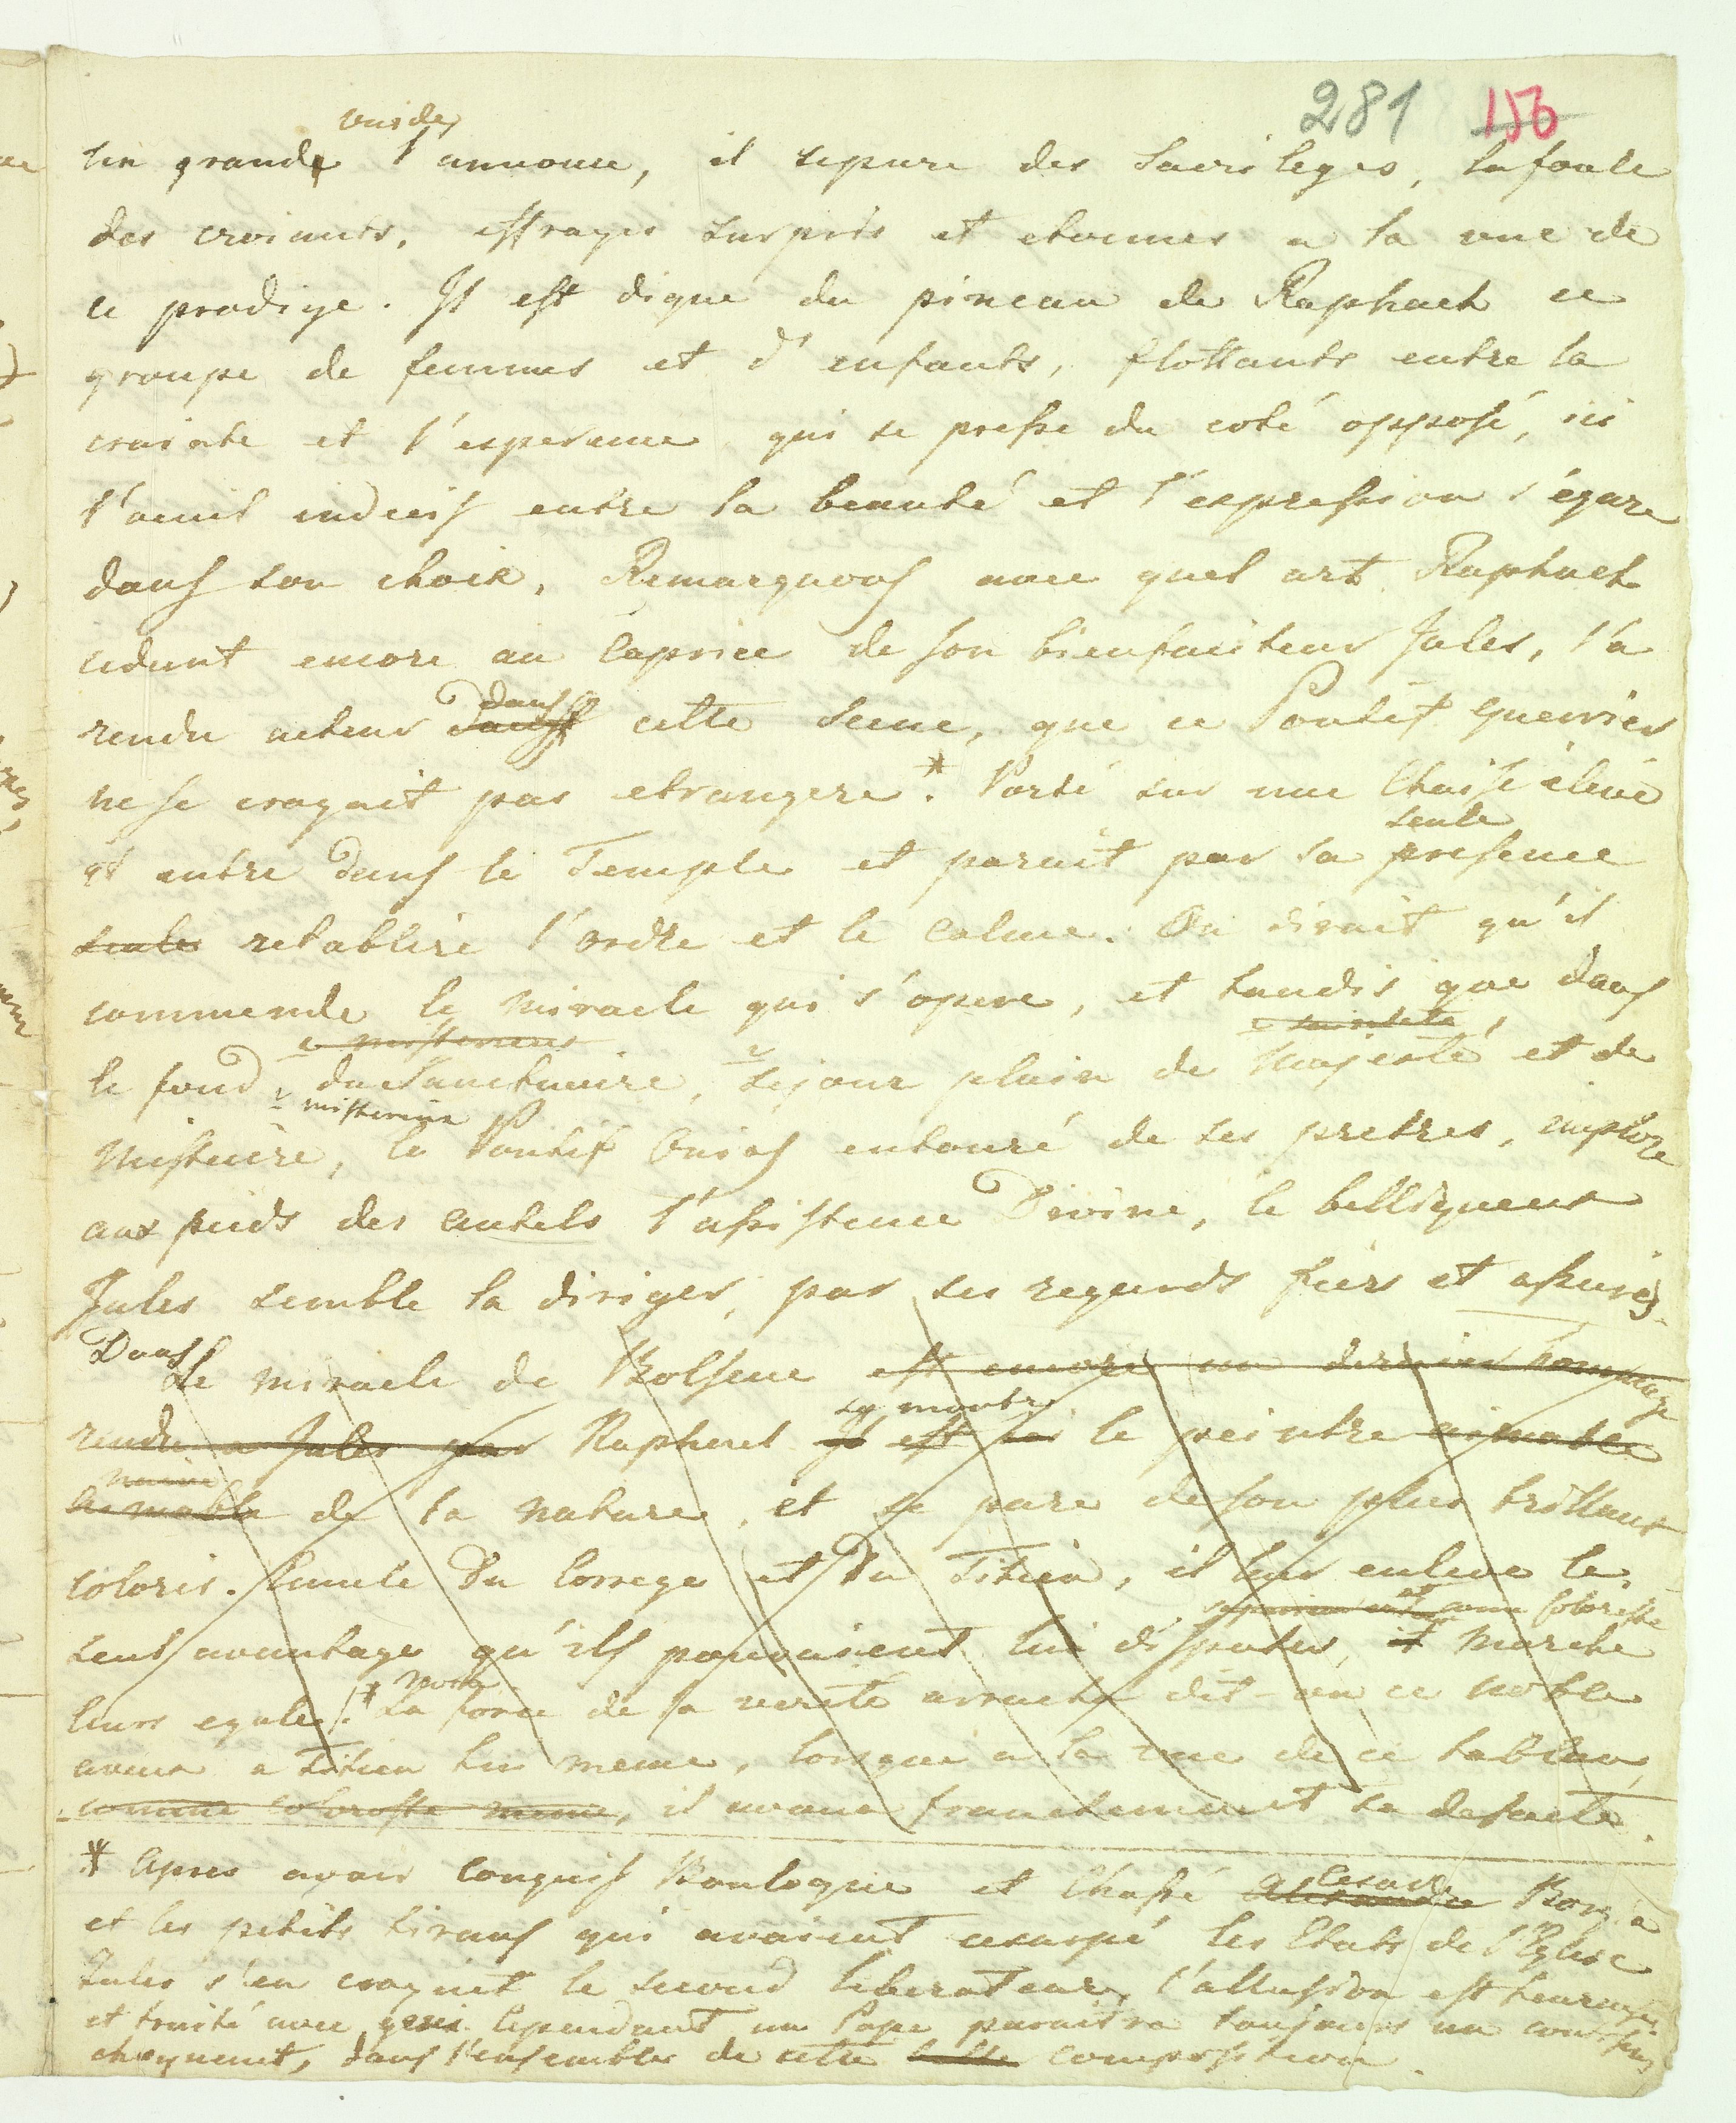 281 156
vuide
un grand l'annonce, il separe des Sacrileges, la foule
des croiants, effrayés surpris et etonnes a la vue de
ce prodige. Il est digne du pinceau de Raphael ce
groupe de femmes et d'enfants, flottants entre la
crainte et l'esperance qui se presse du coté opposé, ici
l'oeuil indecis entre la beauté et l'expression s'égare
dans son choix, Remarquons avec quel art Raphael
cedant encore au Caprice de son bienfaiteur Jules, l'a
dans
rendu acteur dans cette Scene, que ce Pontif guerrier
ne se croyait pas etrangere *. Porté sur une Chaise élevé
seule
il entre dans le Temple et parait par sa presence
seule retablire l'ordre et le Calme. On dirait qu'il
commende le miracle qui s'opere, et tandis que dans
e misterieux e sainteté
le fond du Sanctuaire, sejour plein de Majesté et de
misterieux
Misteire, le Pontif Onias entouré de ses pretres, implore
aux pieds des autels l'assistence Divine, le belliqueux
Jules semble la diriger, par ses regards fiers et assurés.
Dans
Le miracle de Bolsene est encore un dernier hommage
se montre
rendu a Jules par Raphael Il est ici le peintre aimable
naive
aimable de la nature, et se pare de son plus brillant
coloris. Emule du Correge et du Titien, il leur enleve le
et comme coloriste
seul avantage qu'ils pouvaient lui disputer, il marche
leurs egale. * La force de la verité arracha dit-on ce noble
aveux a Titien lui meme, lorsque a la vue de ce tableau,
comme coloriste meme, il avoua franchement sa defaite.
* Apres avoir Conquis Boulogne et Chassé Alexandre Cesare Borgia
et les petits tirans qui avaient usurpé les Etats de l'Eglise
Jules s'en croyait le second liberateur, l'allusion est heureuse
et traité avec genie Cependant un Pape paraitra toujours un contresens
choquent, dans l'ensemble de cette belle composition.